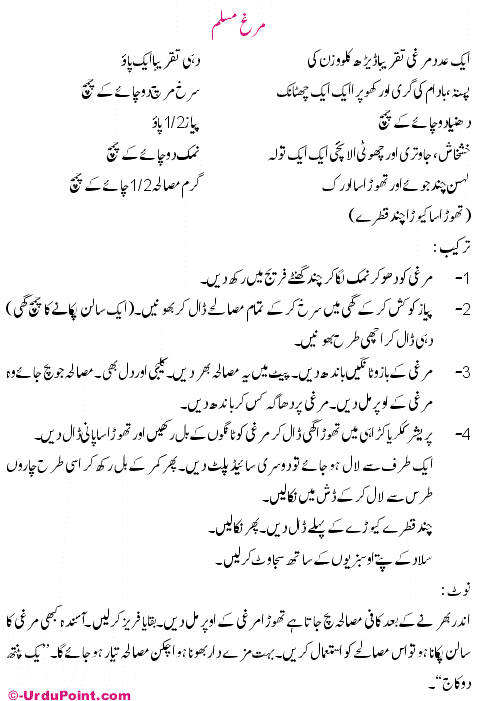 مرغ مسلم
ایک عدد مرغی تقریبا ڈیڑھ کلو وزن کی دہی تقریبا ایک پاؤ
پستہ، بادام کی گری اور کھوپرا ایک ایک چھٹانک سرخ مرچ دو چائے کے چمچ
دھنیا دو چائے کے چمچ پیاز 1/2 پاؤ
خشخاش، جاوتری اور چھوٹی الائچی ایک ایک تولہ نمک دو چائے کے چمچ
لہسن چند جوئے اور تھوڑا سا ادرک گرم مصالحہ 1/2 چائے کے چمچ
(تھوڑا سا کیوڑا چند قطرے)
ترکیب :
1- مرغی کو دھو کر نمک لگا کر چند گھنٹے فریج میں رکھ دیں۔
2- پیاز کو کش کر کے گھی میں سرخ کر کے تمام مصالحے ڈال کر بھونیں۔ (ایک سالن پکانے کا چمچ گھی)
دہی ڈال کر اچھی طرح بھونیں۔
3- مرغی کے بازو ٹانگیں باندھ دیں۔ پیٹ میں یہ مصالحہ بھر دیں۔ کلیجی اور دل بھی۔ مصالحہ جو بچ جائے وہ
مرغی کے اوپر مل دیں۔ مرغی پر دھاگہ کس کر باندھ دیں۔
4- پریشر ککر یا کڑاہی میں تھوڑا گھی ڈال کر مرغی کو ٹانگوں کے بل رکھیں اور تھوڑا سا پانی ڈال دیں۔
ایک طرف سے لال ہو جائے تو دوسری سائیڈ پلٹ دیں۔ پھر کمر کے بل رکھ کر اسی طرح چاروں
طرس سے لال کر کے ڈش میں نکالیں۔
چند قطرے کیوڑے کے پہلے ڈل دیں۔ پھر نکالیں۔
سلاد کے پتے او سبزیوں کے ساتھ سجاوٹ کر لیں۔
نوٹ :
اندر بھرنے کے بعد کافی مصالحہ بچ جاتا ہے تھوڑا مرغی کے اوپر مل دیں۔ بقایا فریز کر لیں۔ آئندہ کبھی مرغی کا
سالن پکانا ہو تو اس مصالحے کو استعمال کریں۔ بہت مزے دار بھونا ہوا چکن مصالحہ تیار ہو جائے گا۔ ”یک پنتھ
دو کاج“۔
©-UrduPoint.com